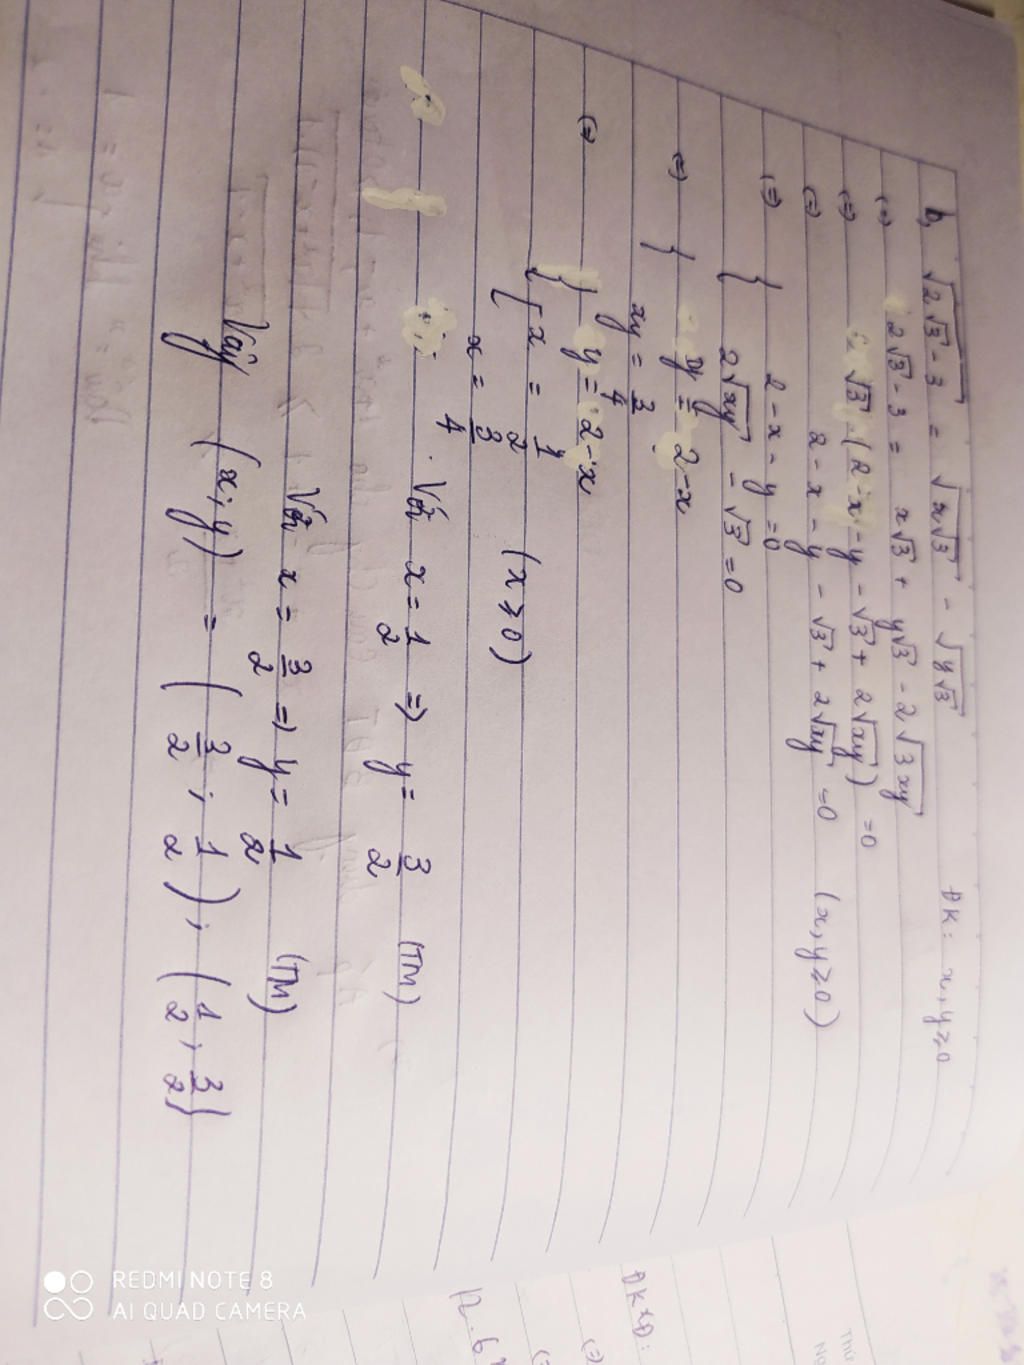 b, √(2√3 - 3) = √(x√3) - √(y√3) ĐK: x, y ≥ 0
(=) 2√3 - 3 = x√3 + y√3 - 2√(3xy)
(=) √3 (2 - x - y - √3 + 2√(xy)) = 0
(=) 2 - x - y - √3 + 2√(xy) = 0 (x, y ≥ 0)
(=) { 2 - x - y = 0
2√(xy) - √3 = 0
(=) { y = 2 - x
xy = 3/4
(=) { y = 2 - x
[ x = 1/2 (x ≥ 0)
x = 3/4
Với x = 1/2 => y = 3/2 (TM)
Với x = 3/2 => y = 1/2 (TM)
Vậy (x; y) = (3/2; 1/2); (1/2; 3/2)
ĐKXĐ:
(=)
(=)
REDMI NOTE 8
AI QUAD CAMERA